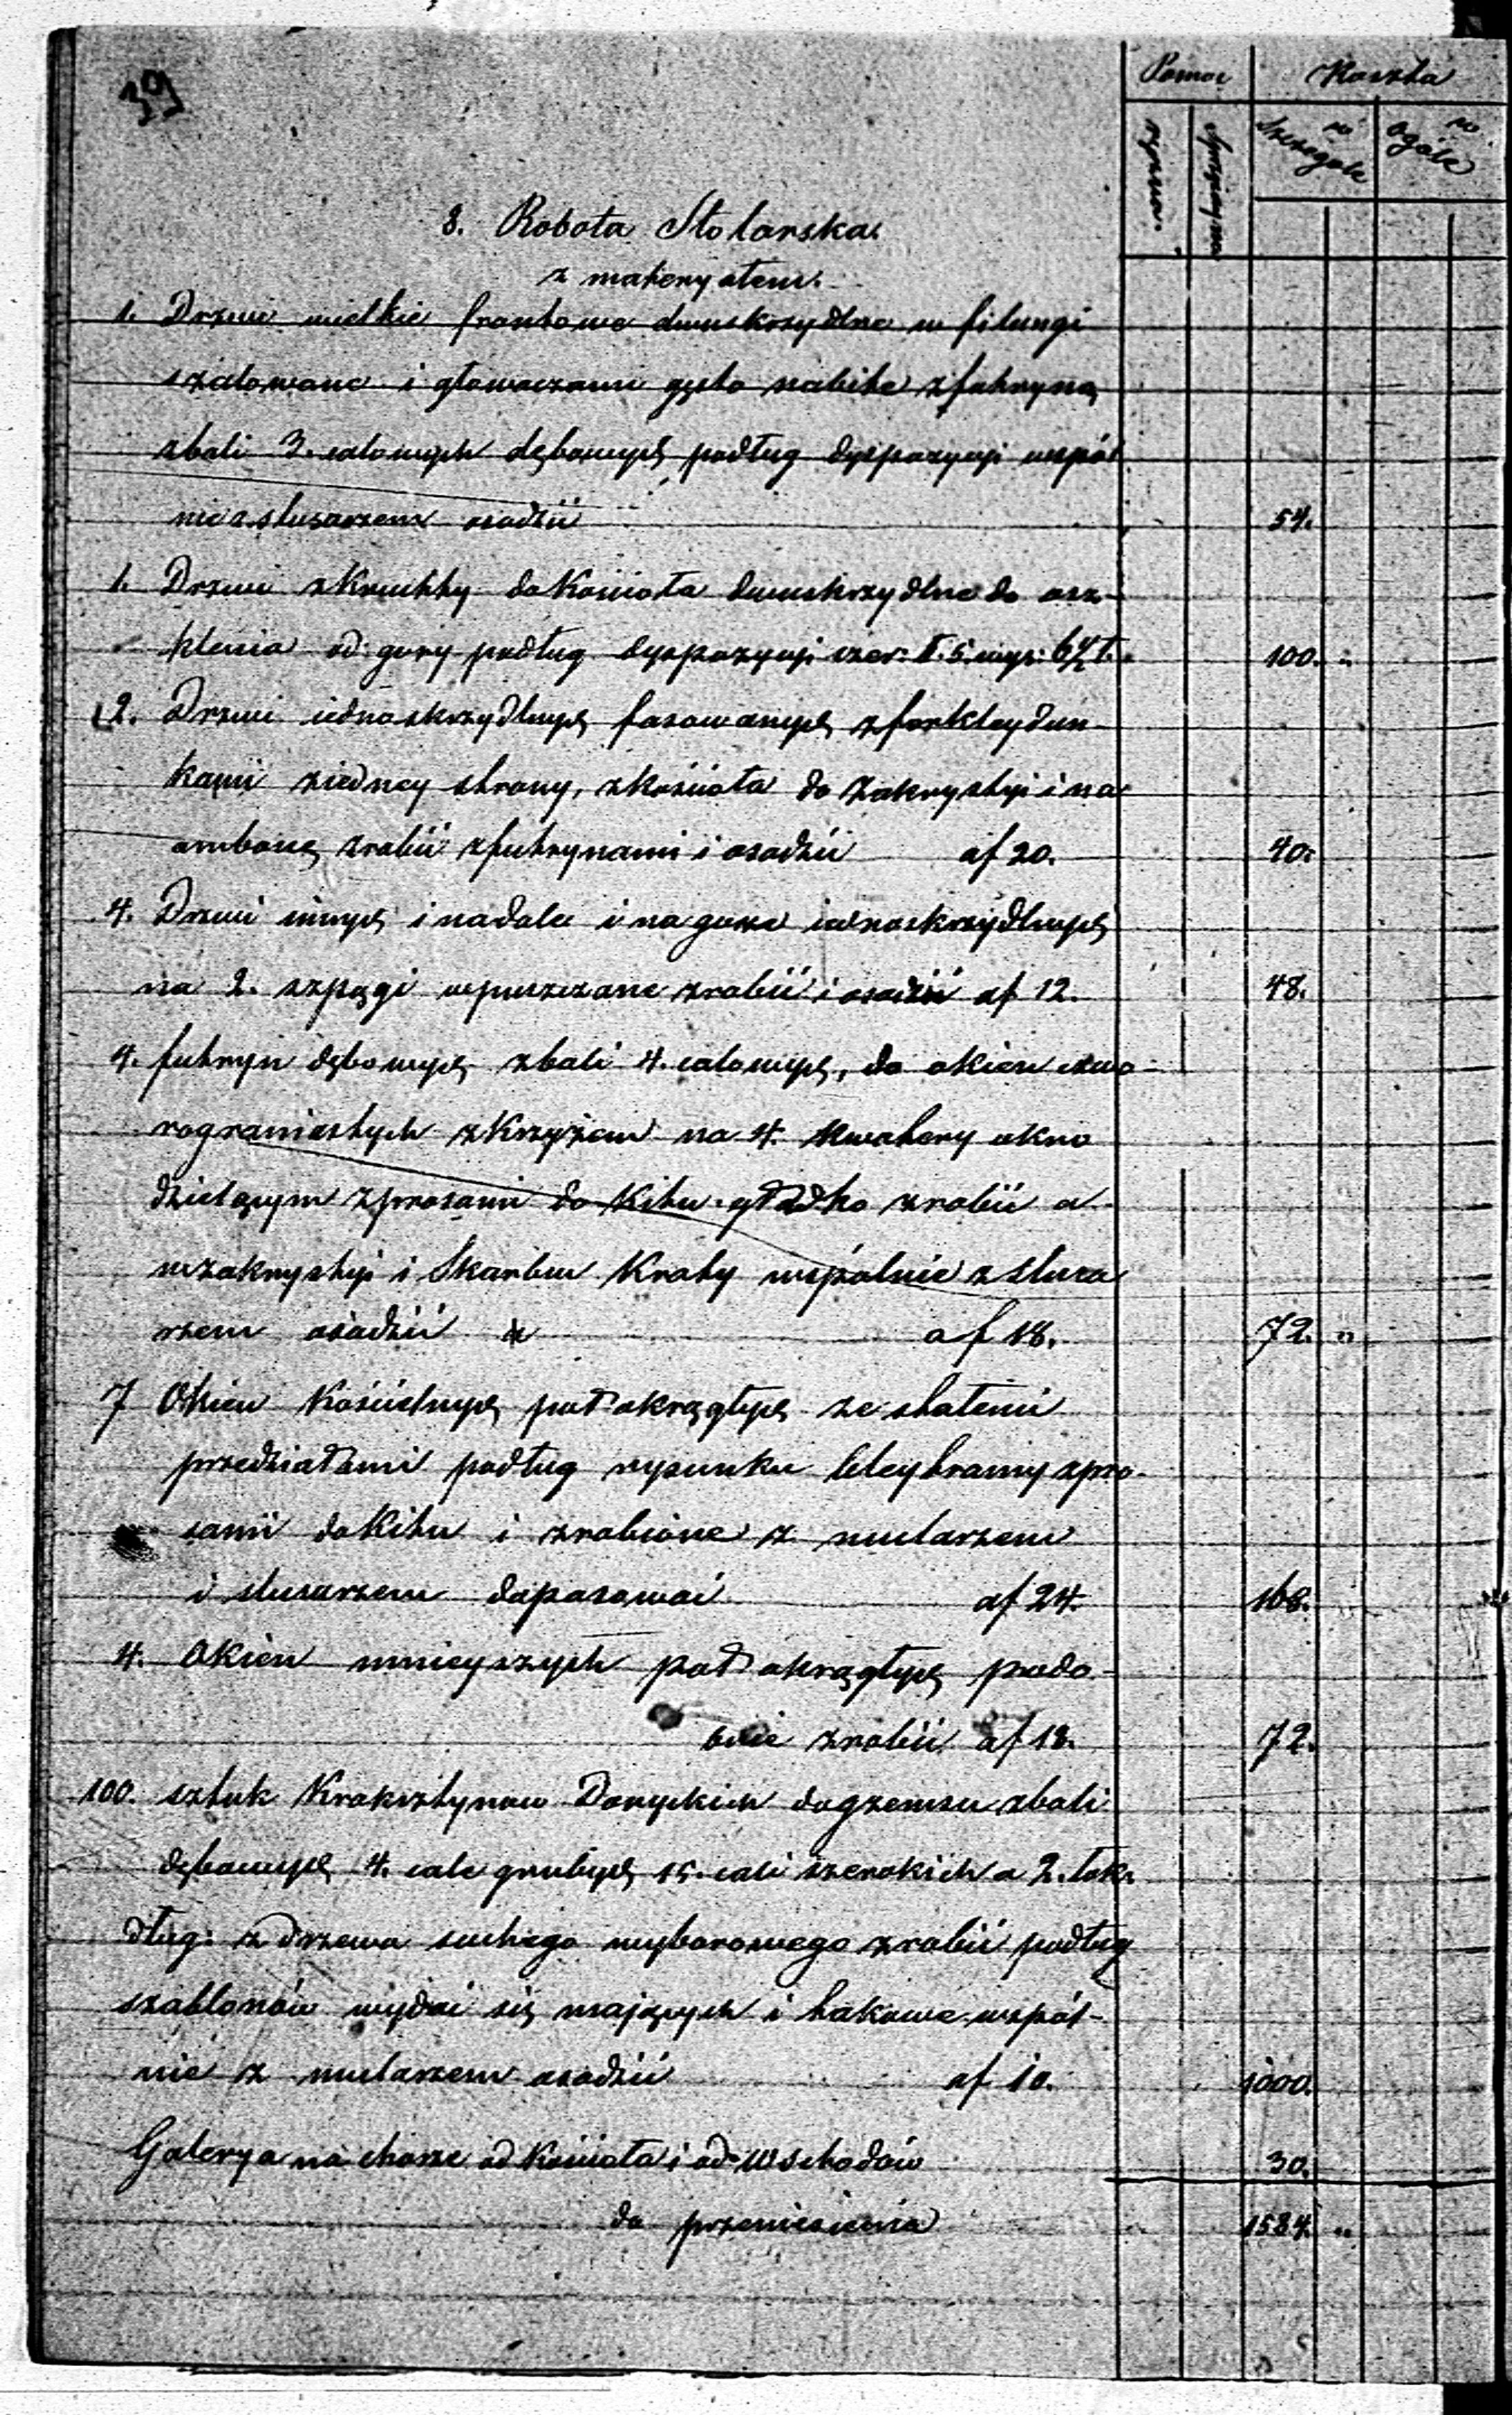 39
Pomoc Koszta
ręczna w szczegole w ogóle
8. Robota Stolarska
z materyałem.
1. Drzwi wielkie frontowe dwuskrzydlne w filungi
szalowane i głowaczami gęsto nabite z futryną
zbali 3. calowych dębowych podług dyspozycyi wspól
nie z slusarzem osadzić 54.
1. Drzwi zkruchty do Kościoła dwuskrzydlne do osz-
klenia od gury podług dyspozycyi szer: ł. 5. wys: 6½ ł. 100. "
2. Drzwi iednoskrzydlnych fasowanych zforkleydun-
kami ziedney strony, zkościoła do Zakrystyi i na
ambonę zrobić zfutrynami i osadzić af 20. 40.
4. Drzwi innych i nadole i na gurze iednoskrzydlnych
na 2. szpągi wpuszczane zrobić i osadzić af 12. 48.
4. futryn dębowych zbali 4. calowych, do okien czwo-
rograniastych zkrzyżem na 4. kwatery okno
dzielącym zprosami do Kitu gładko zrobić a
wzakrystyi i Skarbcu Kraty wspólnie z slusa
rzem osadzić af 18. 72. "
7 Okien Kościelnych pół okrągłych ze stałemi
przedziałami podług rysunku zpro-
sami do Kitu i zrobione z mularzem
i slusarzem dopasować af 24. 168.
4. Okien mnieyszych pół okrągłych podo-
bnie zrobić af 18. 72.
100. sztuk Kroksztynow Doryckich dogzemsu zbali
dębowych 4. cale grubych 15. cali szerokich a 2. łok:
dług: z drzewa suchego wyborowego zrobić podług
szablonów wydać się mających i takowe wspól-
nie z mularzem osadzić af 10. 1000.
Galerya na chorze od Kościoła i od Wschodów 30.
do przeniesienia 1584. "